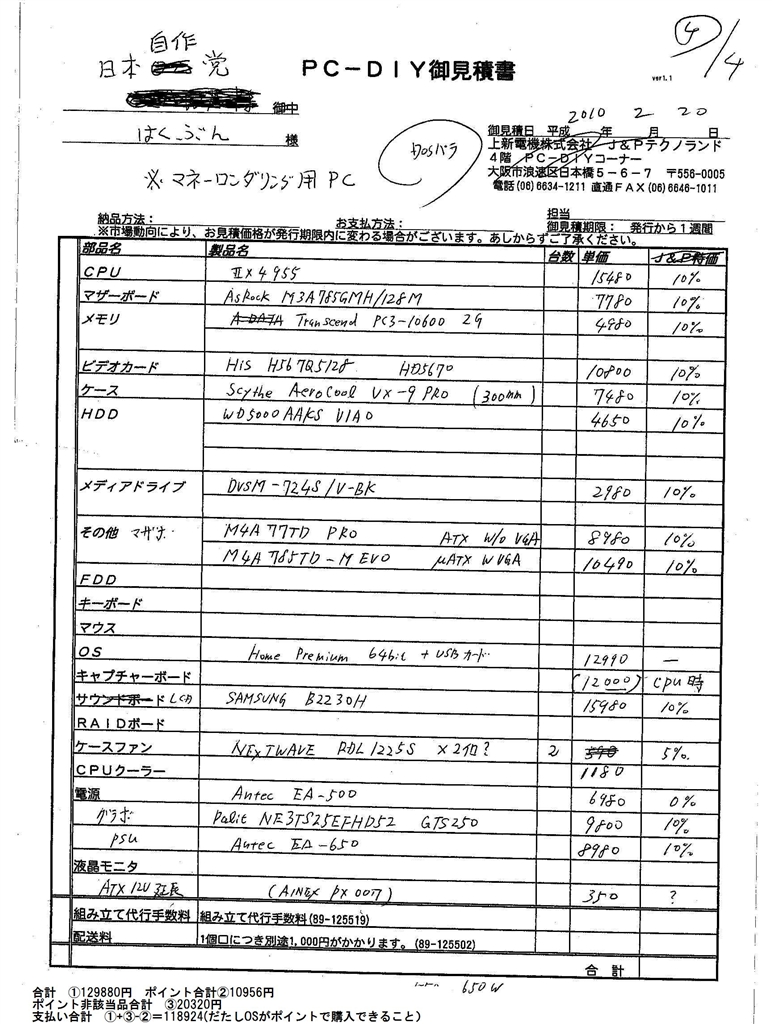 ④/4
自作
日本 党
PC-DIY御見積書
ver1.1
御中
はくぶん 様
DOSパラ
※ マネーロンダリング用PC
2010 2 20
御見積日 平成 年 月 日
上新電機株式会社 J&Pテクノランド
4階 PC-DIYコーナー
大阪市浪速区日本橋5-6-7 〒556-0005
電話(06)6634-1211 直通FAX(06)6646-1011
納品方法： お支払方法： 担当
御見積期限： 発行から1週間
※市場動向により、お見積価格が発行期限内に変わる場合がございます。あしからずご了承ください。
部品名 製品名 台数 単価 J&P特価
CPU ⅡX4 955 15480 10%
マザーボード AsRock M3A785GMH/128M 7780 10%
メモリ A-DATA Transcend PC3-10600 2G 4980 10%
ビデオカード His H567Q5128 HD5670 10800 10%
ケース Scythe AeroCool VX-9 PRO (300mm) 7480 10%
HDD WD5000AAKS V1A0 4650 10%
メディアドライブ DVSM-724S/V-BK 2980 10%
その他 マザボ M4A77TD PRO ATX w/o VGA 8980 10%
M4A785TD-M EVO μATX W VGA 10490 10%
FDD
キーボード
マウス
OS Home Premium 64bit + USBカード 12990 —
キャプチャーボード (12000) CPU時
サウンドボード LCD SAMSUNG B2230H 15980 10%
RAIDボード
ケースファン NEXTWAVE RDL1225S ×2個? 2 590 5%
CPUクーラー 1180
電源 Antec EA-500 6980 0%
グラボ Palit NE3TS25EFHD52 GTS250 9800 10%
PSU Antec EA-650 8980 10%
液晶モニタ
ATX12V延長 (AINEX PX-007) 350 ?
組み立て代行手数料 組み立て代行手数料(89-125519)
配送料 1個口につき別途1,000円がかかります。(89-125502)
合計
650W
合計 ①129880円 ポイント合計②10956円
ポイント非該当品合計 ③20320円
支払い合計 ①+③-②=118924(だたしOSがポイントで購入できること)